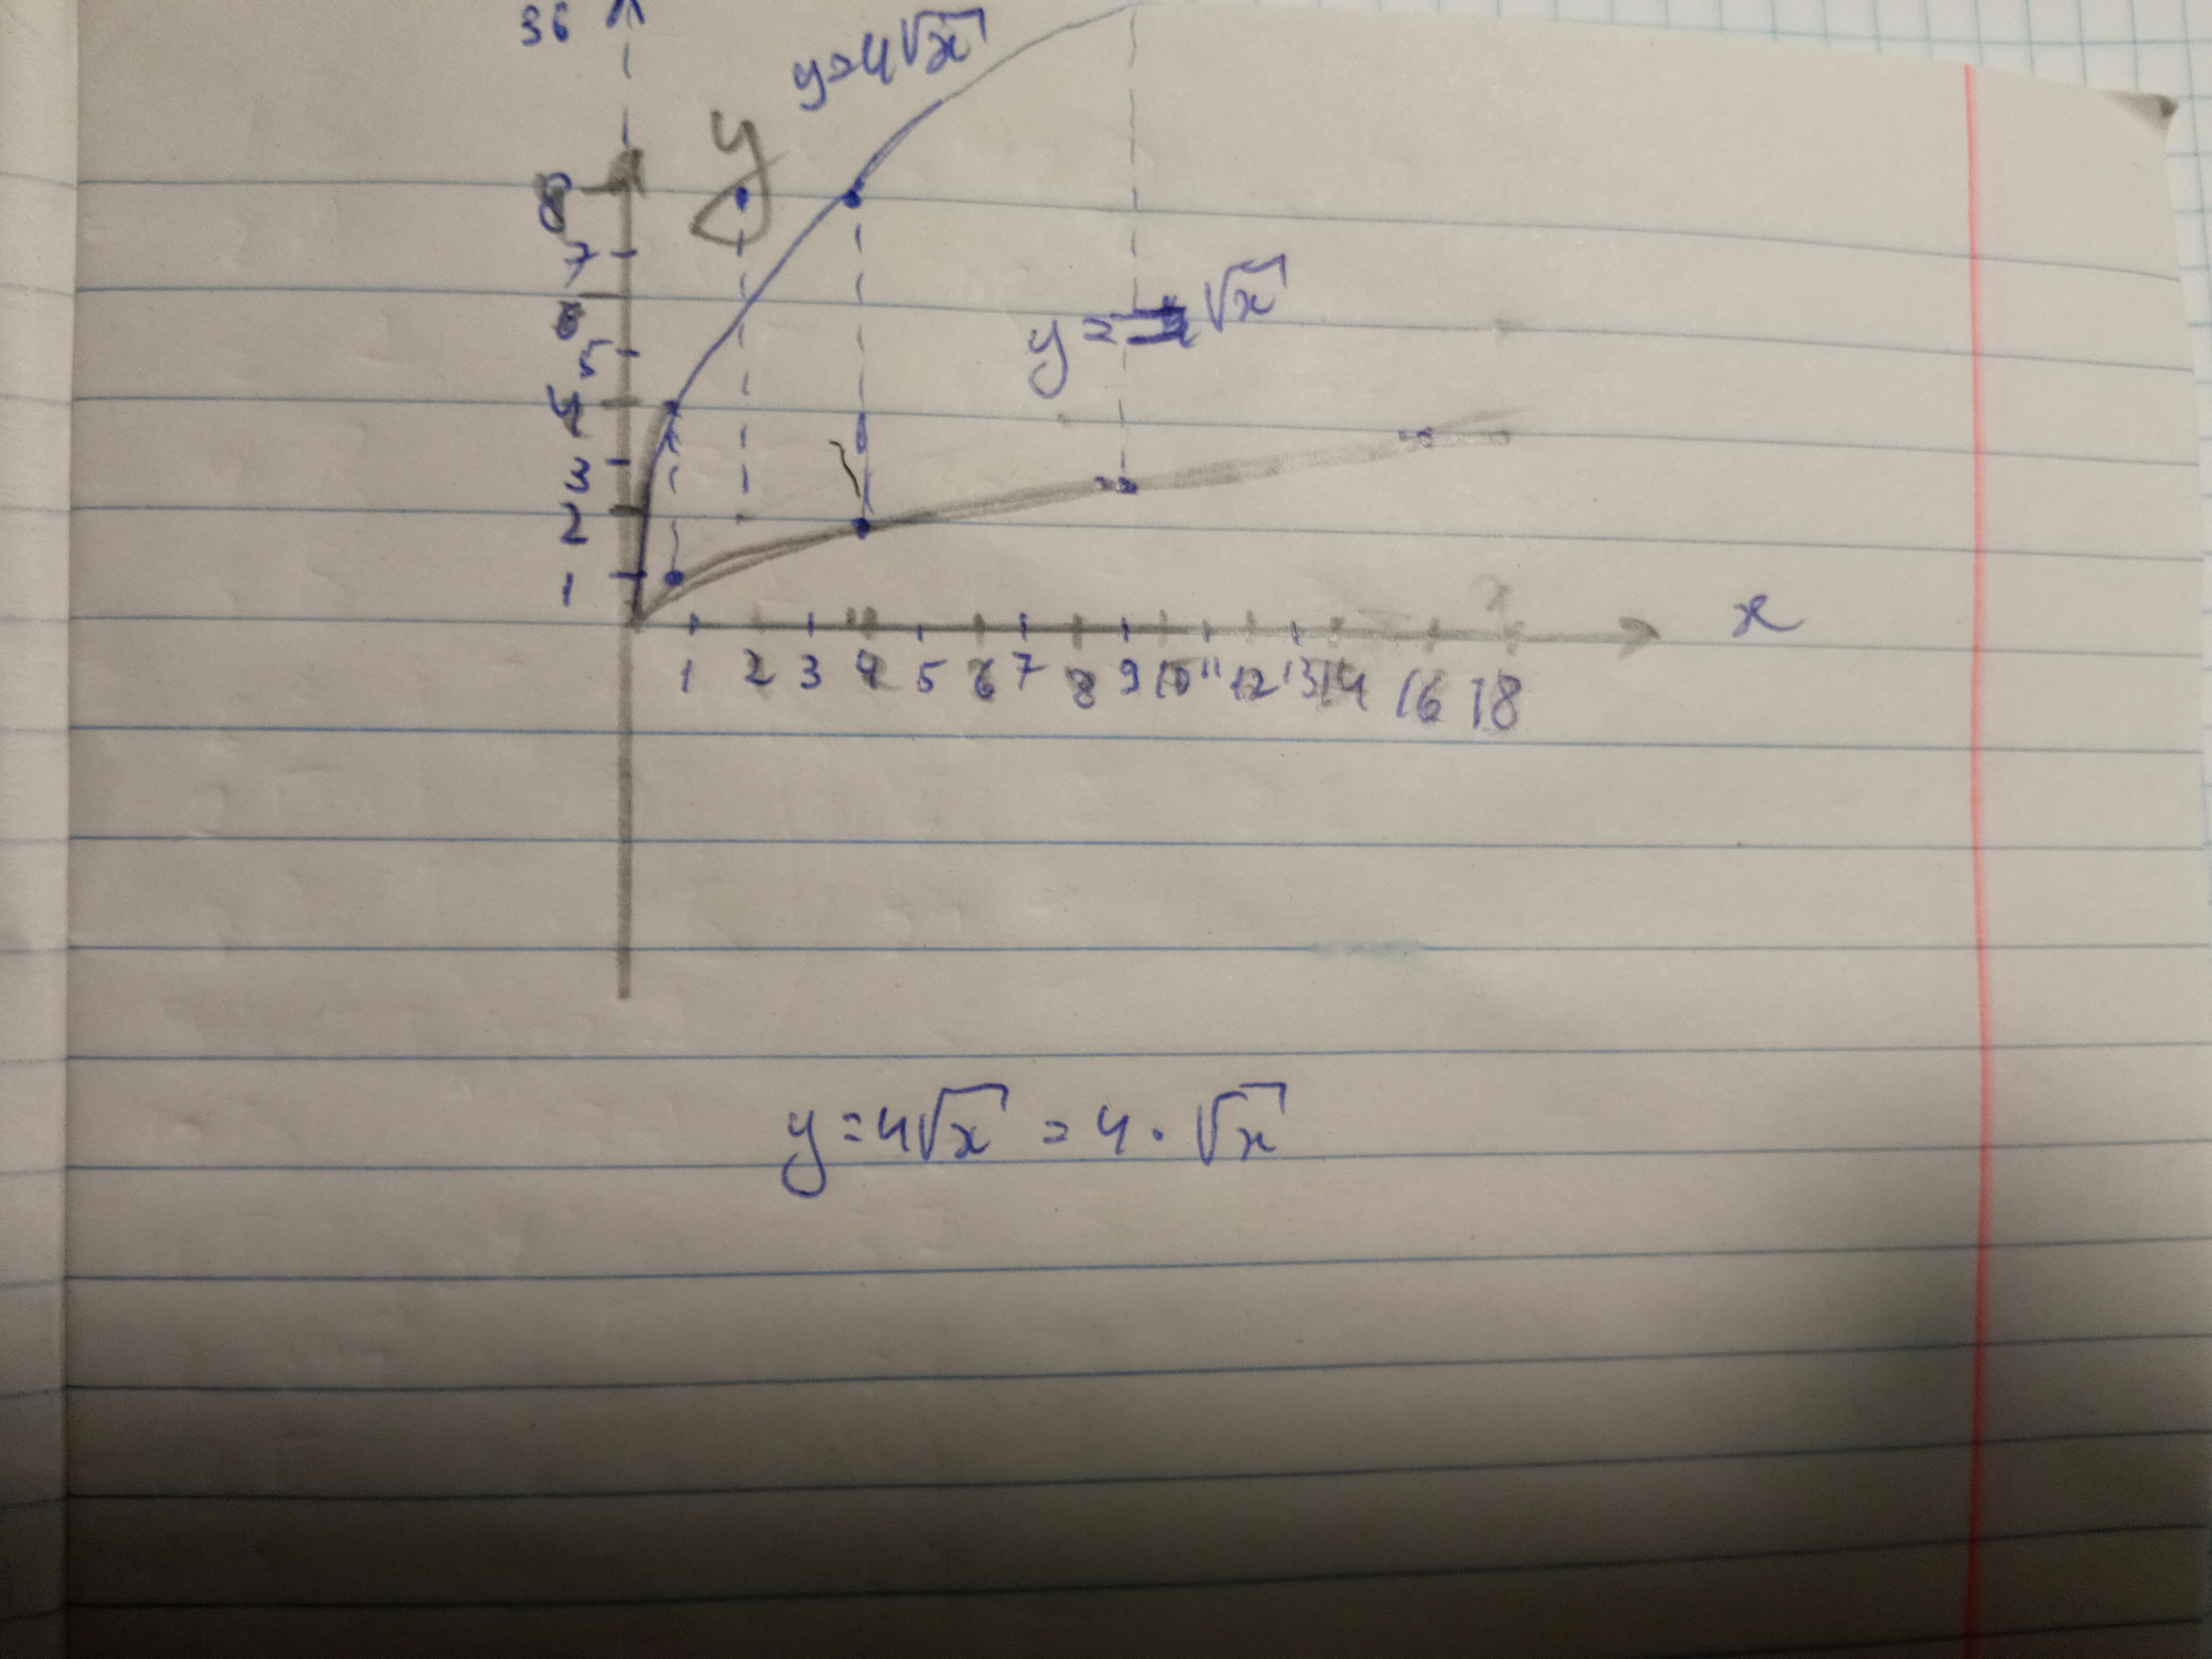 36
y=4√x
y
8
7
6
y = √x
5
4
3
2
1
x
1 2 3 4 5 6 7 8 9 10 11 12 13 14 16 18
y=4√x = 4 · √x